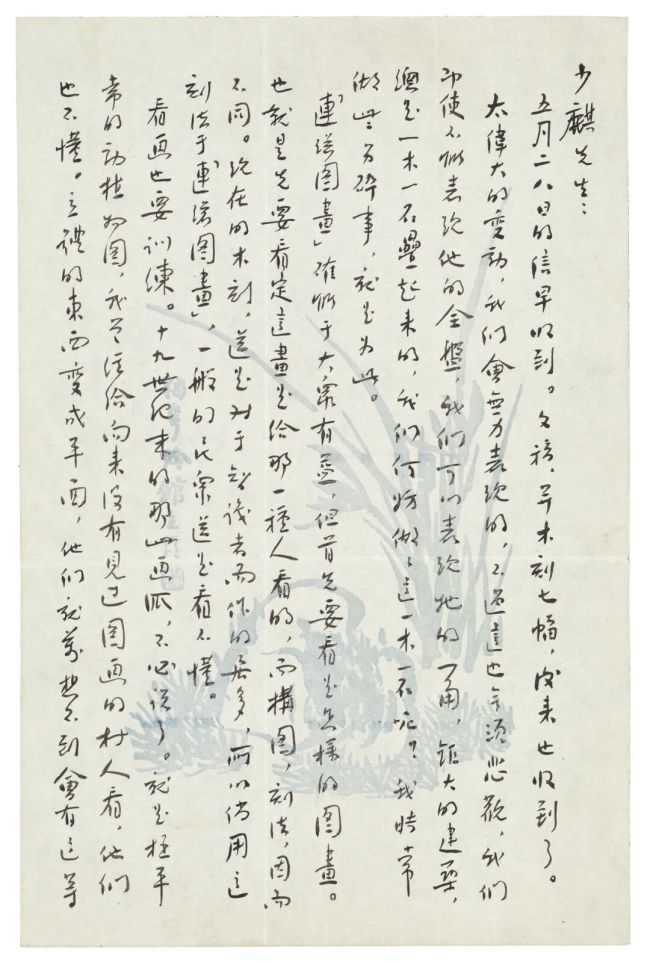 少麒先生：
五月二八日的信早收到。文稿，并木刻七幅，後来也收到了。
太偉大的变动，我们會無力表现的，不过這也無须悲观，我们
即使不能表现他的全盤，我们可以表现牠的一角，鉅大的建築，
總是一木一石叠起来的，我们何妨做做這一木一石呢？我時常
做些零碎事，就是为此。
「連環图畫」確能于大衆有益，但首先要看是怎樣的图畫。
也就是先要看定這畫是给那一種人看的，而構图，刻法，因而
不同。现在的木刻，還是对于智識者而作的居多，所以倘用這
刻法于「連環图畫」，一般的民衆還是看不懂。
看画也要训練。十九世纪末的那些画派，不必说了。就是極平
常的动植物图，我曾经给向来没有見过图画的村人看，他们
也不懂。立體的東西变成平面，他们就萬想不到會有這等